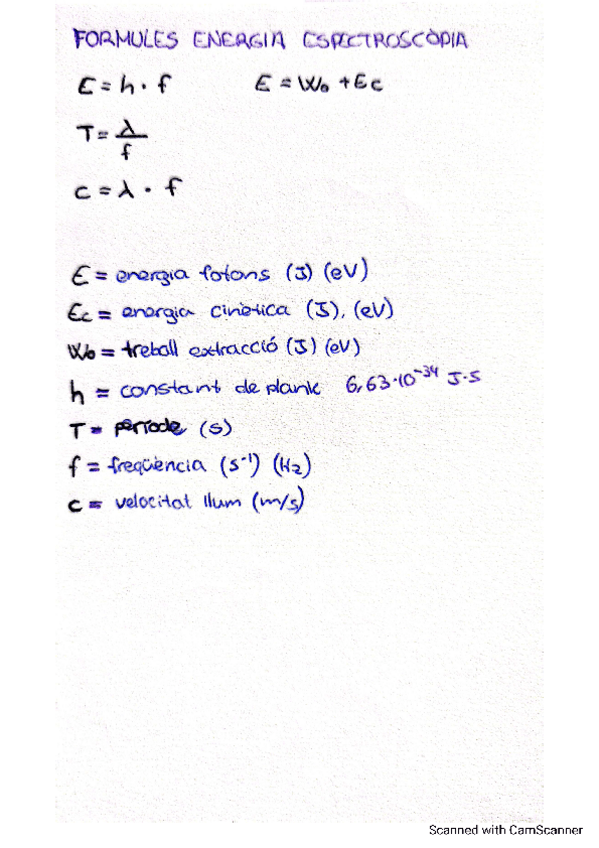 FORMULES ENERGIA ESPECTROSCÒPIA
E = h · f E = W₀ + Ec
T = λ/f
c = λ · f
E = energia fotons (J) (eV)
Ec = energia cinètica (J), (eV)
W₀ = treball extracció (J) (eV)
h = constant de plank 6,63·10⁻³⁴ J·s
T = període (s)
f = freqüència (s⁻¹) (Hz)
c = velocitat llum (m/s)
Scanned with CamScanner